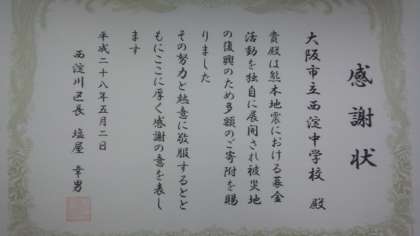 感謝状
大阪市立西淀中学校 殿
貴殿は熊本地震における募金
活動を独自に展開され被災地
の復興のため多額のご寄附を賜
りました
その努力と熱意に敬服するとと
もにここに厚く感謝の意を表し
ます
平成二十八年五月二日
西淀川区長 塩屋 幸男